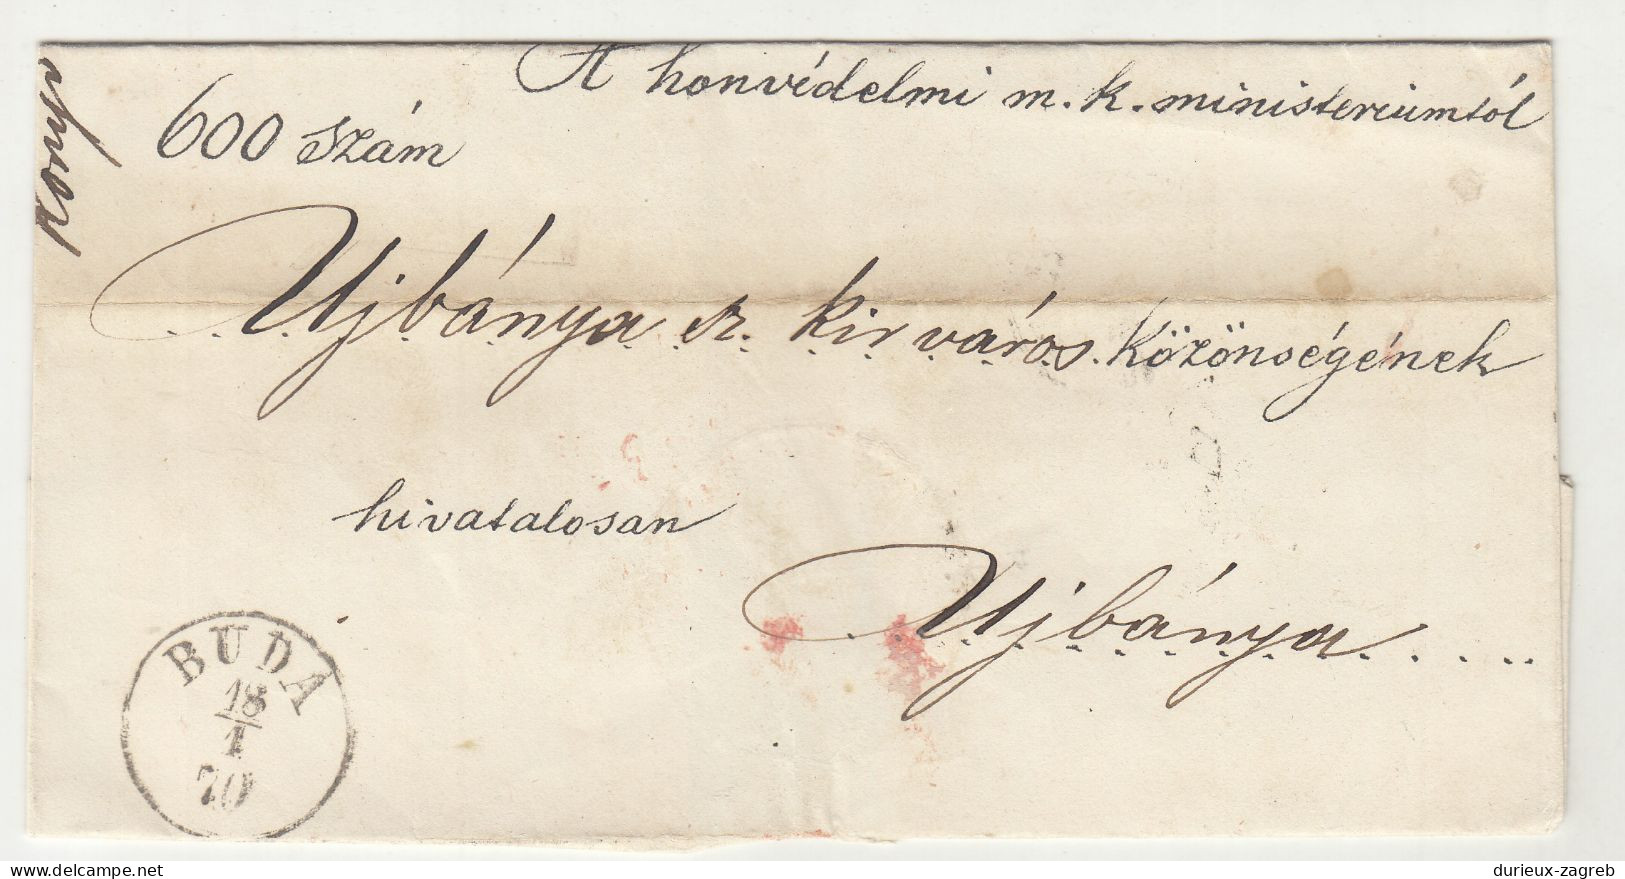 A honvédelmi m. k. ministeriumtól
600 szám
Konya
Ujbánya sz. kir város közönségének
hivatalosan
Ujbánya
BUDA
18/1
70
delcampe.net
durieux-zagreb